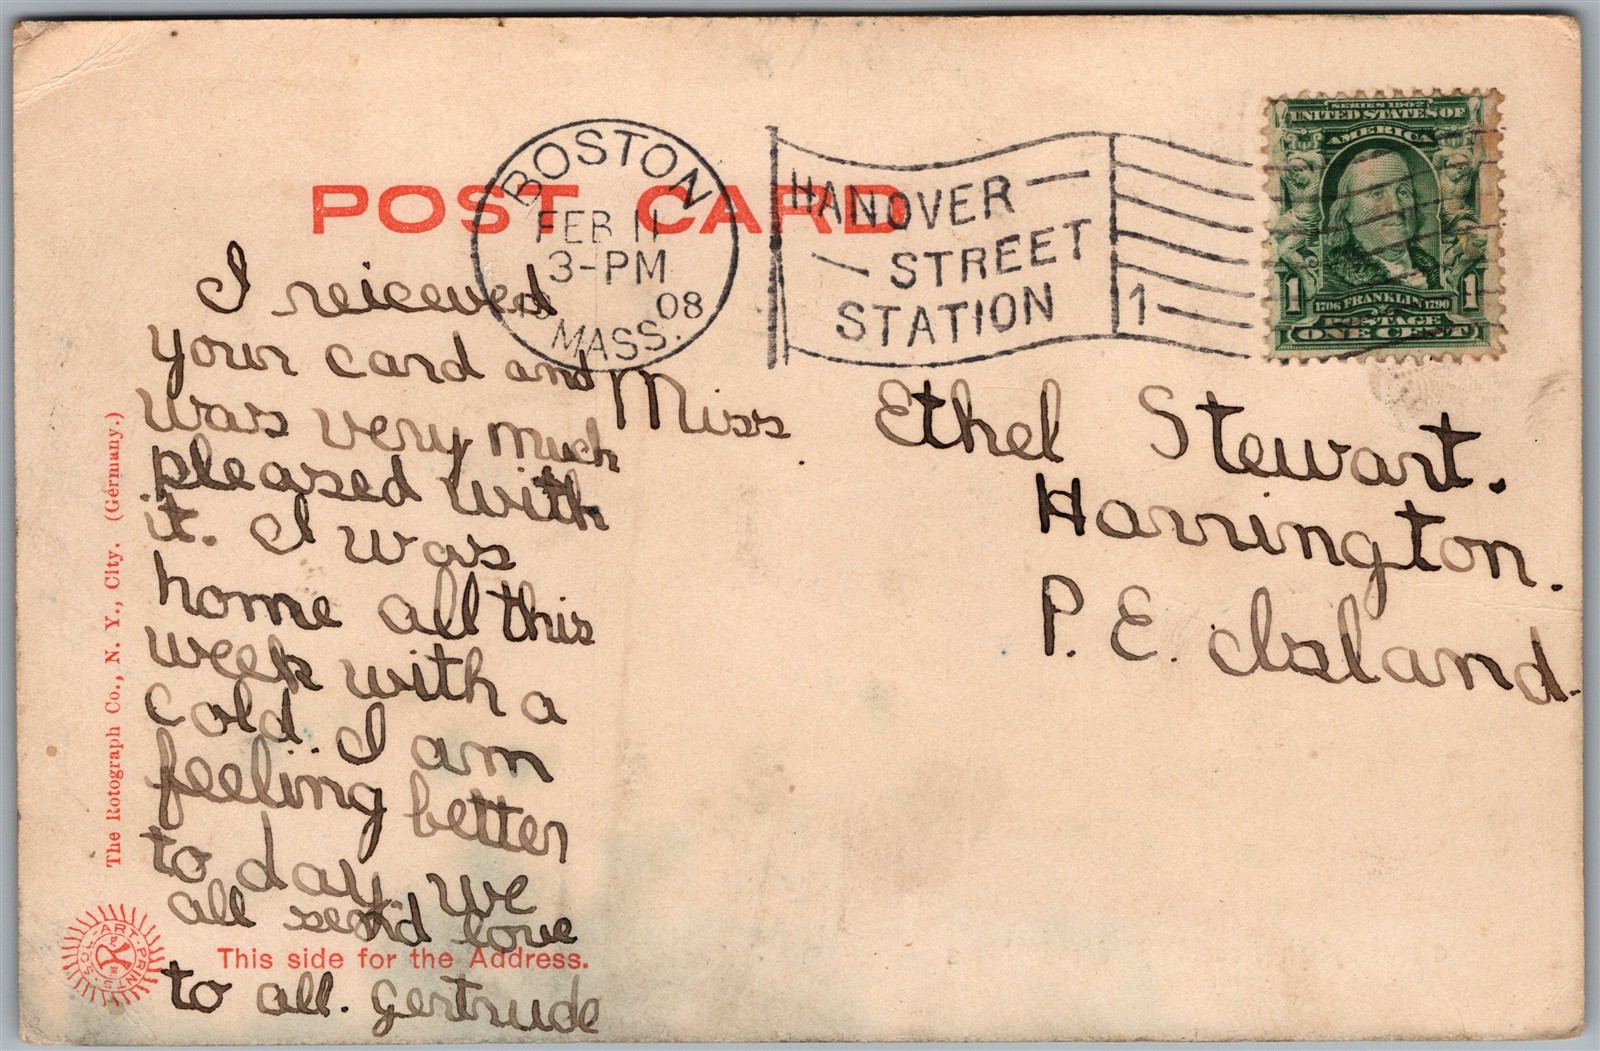 POST CARD
BOSTON
FEB 11
3-PM
19 08
MASS.
HANOVER
STREET
STATION
1
SERIES 1902
UNITED STATES OF
AMERICA
1 1
1706 FRANKLIN 1790
POSTAGE
ONE CENT
I reiceved
your card and
was very much
pleased with
it. I was
home all this
week with a
cold. I am
feeling better
to day. we
all send love
to all. Gertrude
Miss Ethel Stewart.
Harrington.
P. E. Island.
This side for the Address.
The Rotograph Co., N. Y., City. (Germany.)
SOL-ART-PRINTS